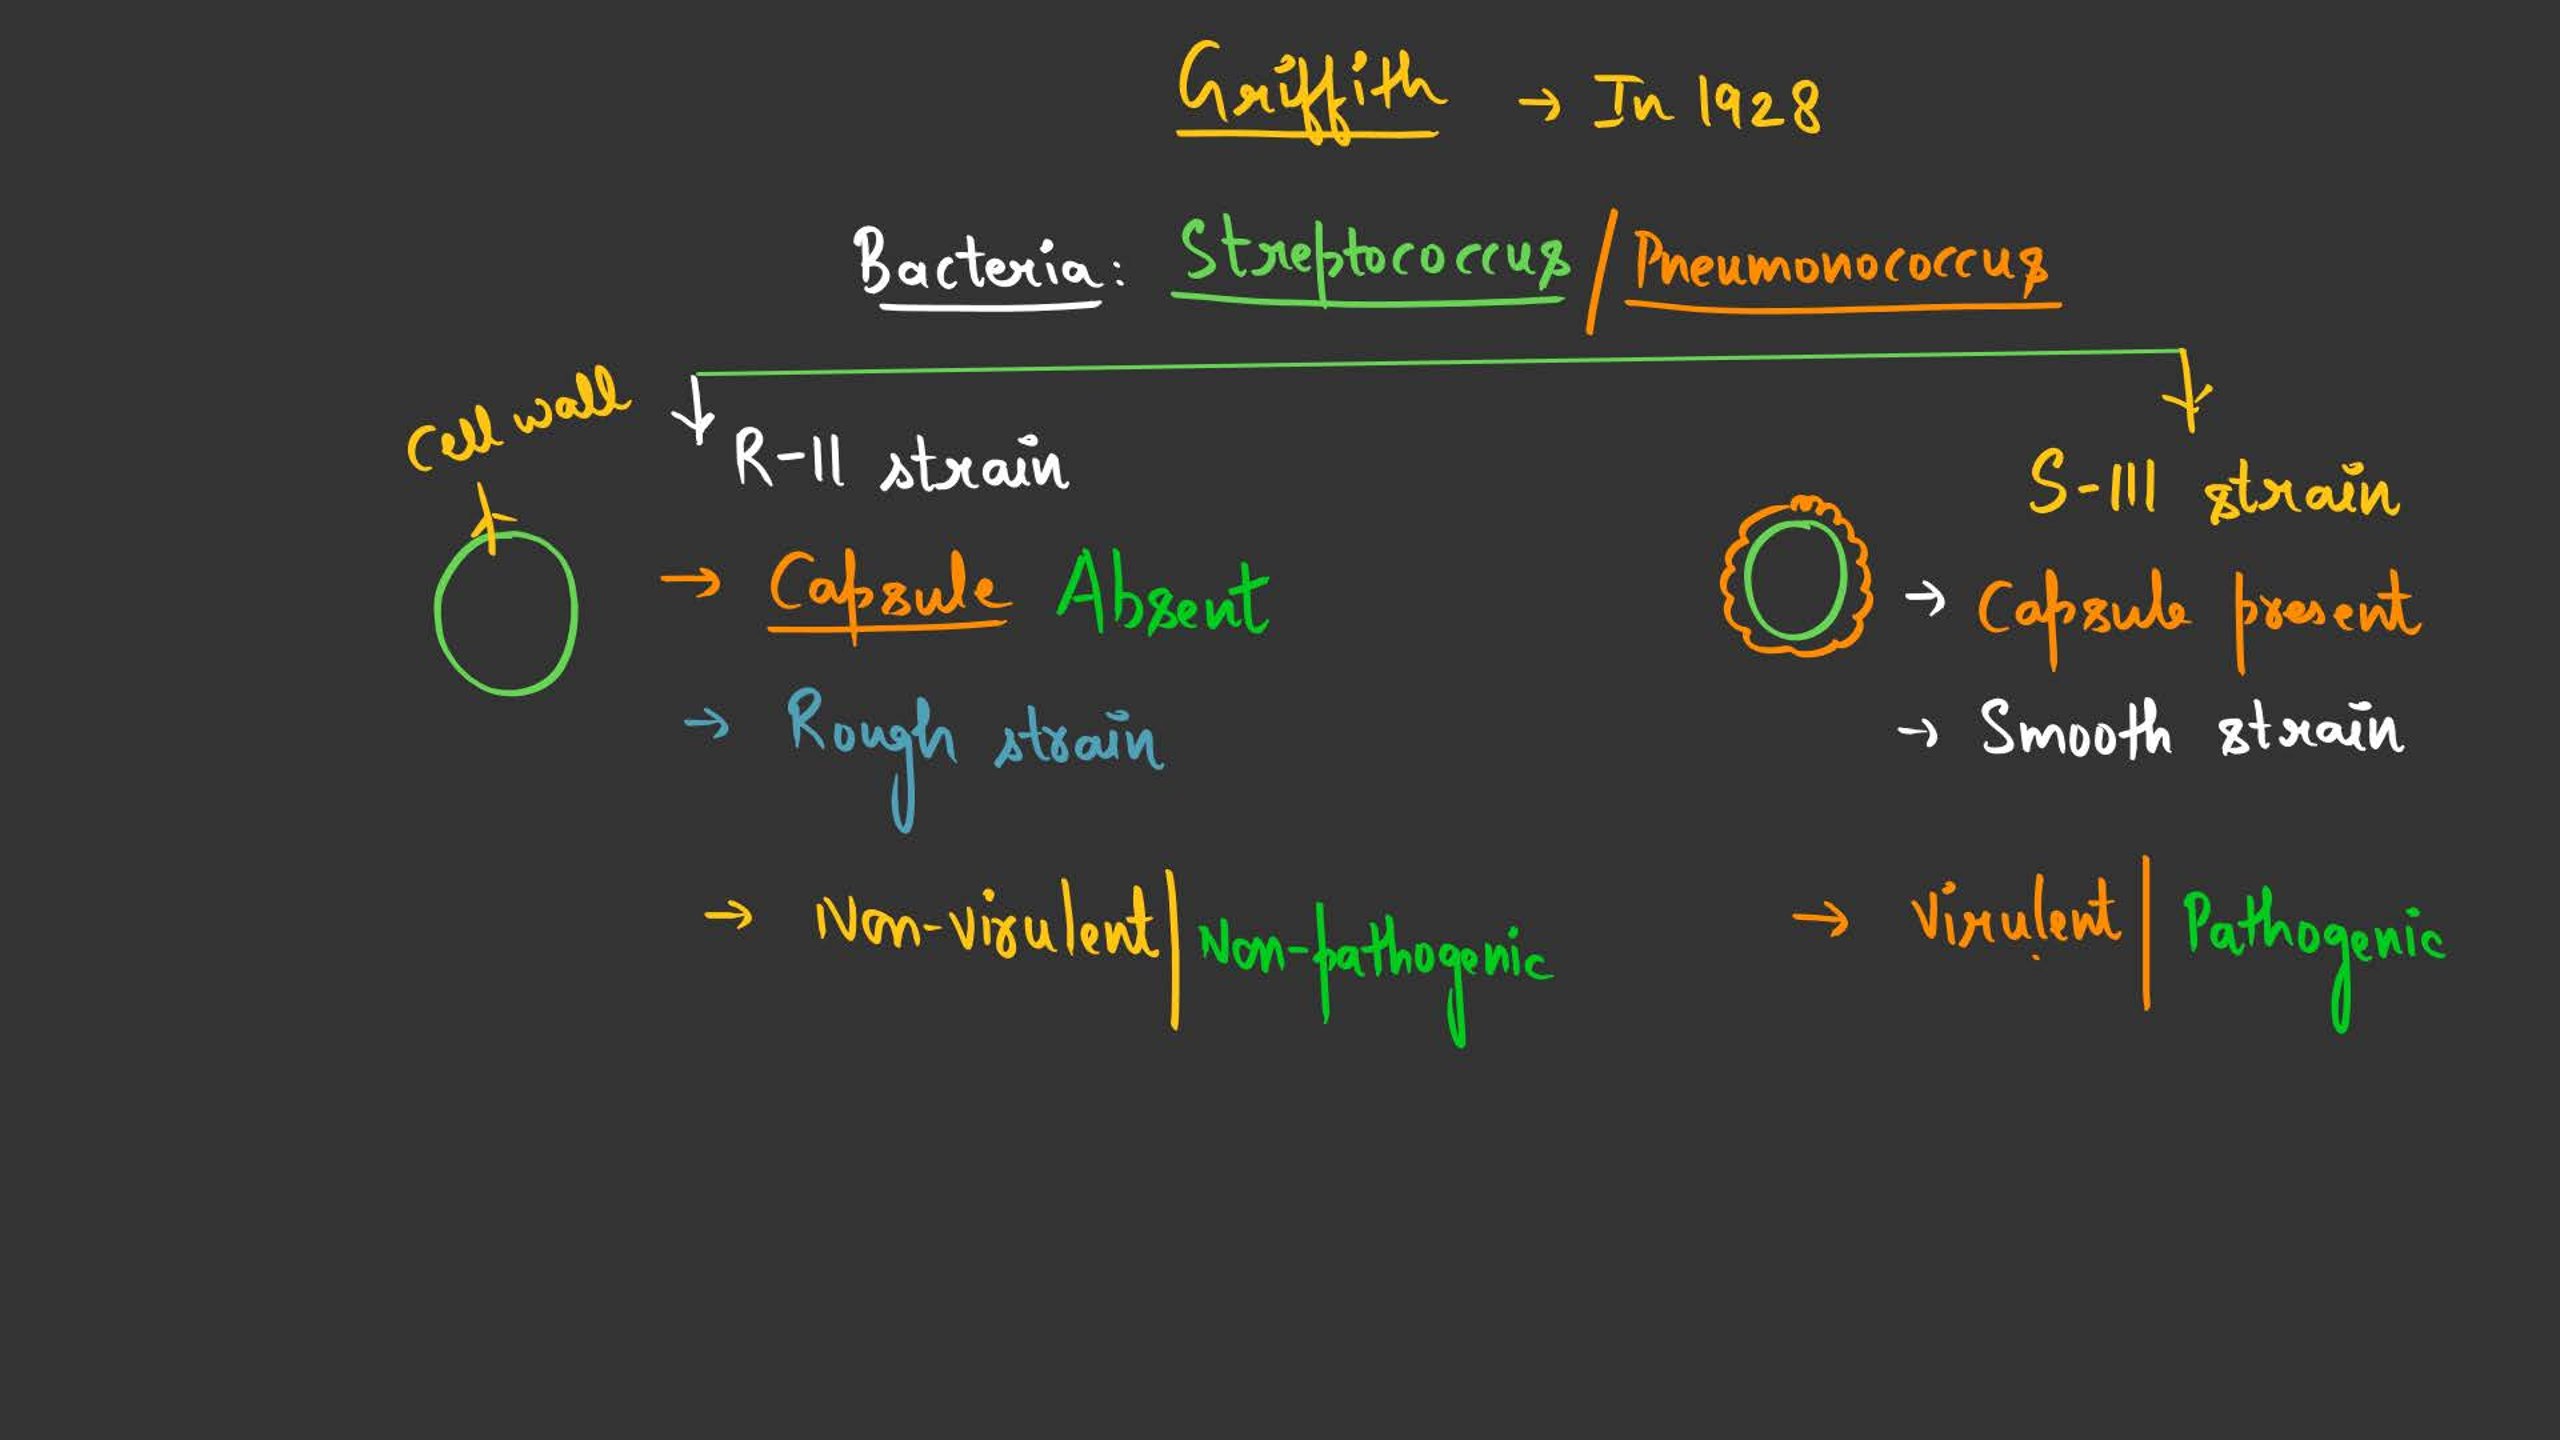 Griffith → In 1928
Bacteria: Streptococcus / Pneumonococcus
Cell wall
R-II strain
→ Capsule Absent
→ Rough strain
→ Non-virulent | Non-pathogenic
S-III strain
→ Capsule present
→ Smooth strain
→ Virulent | Pathogenic